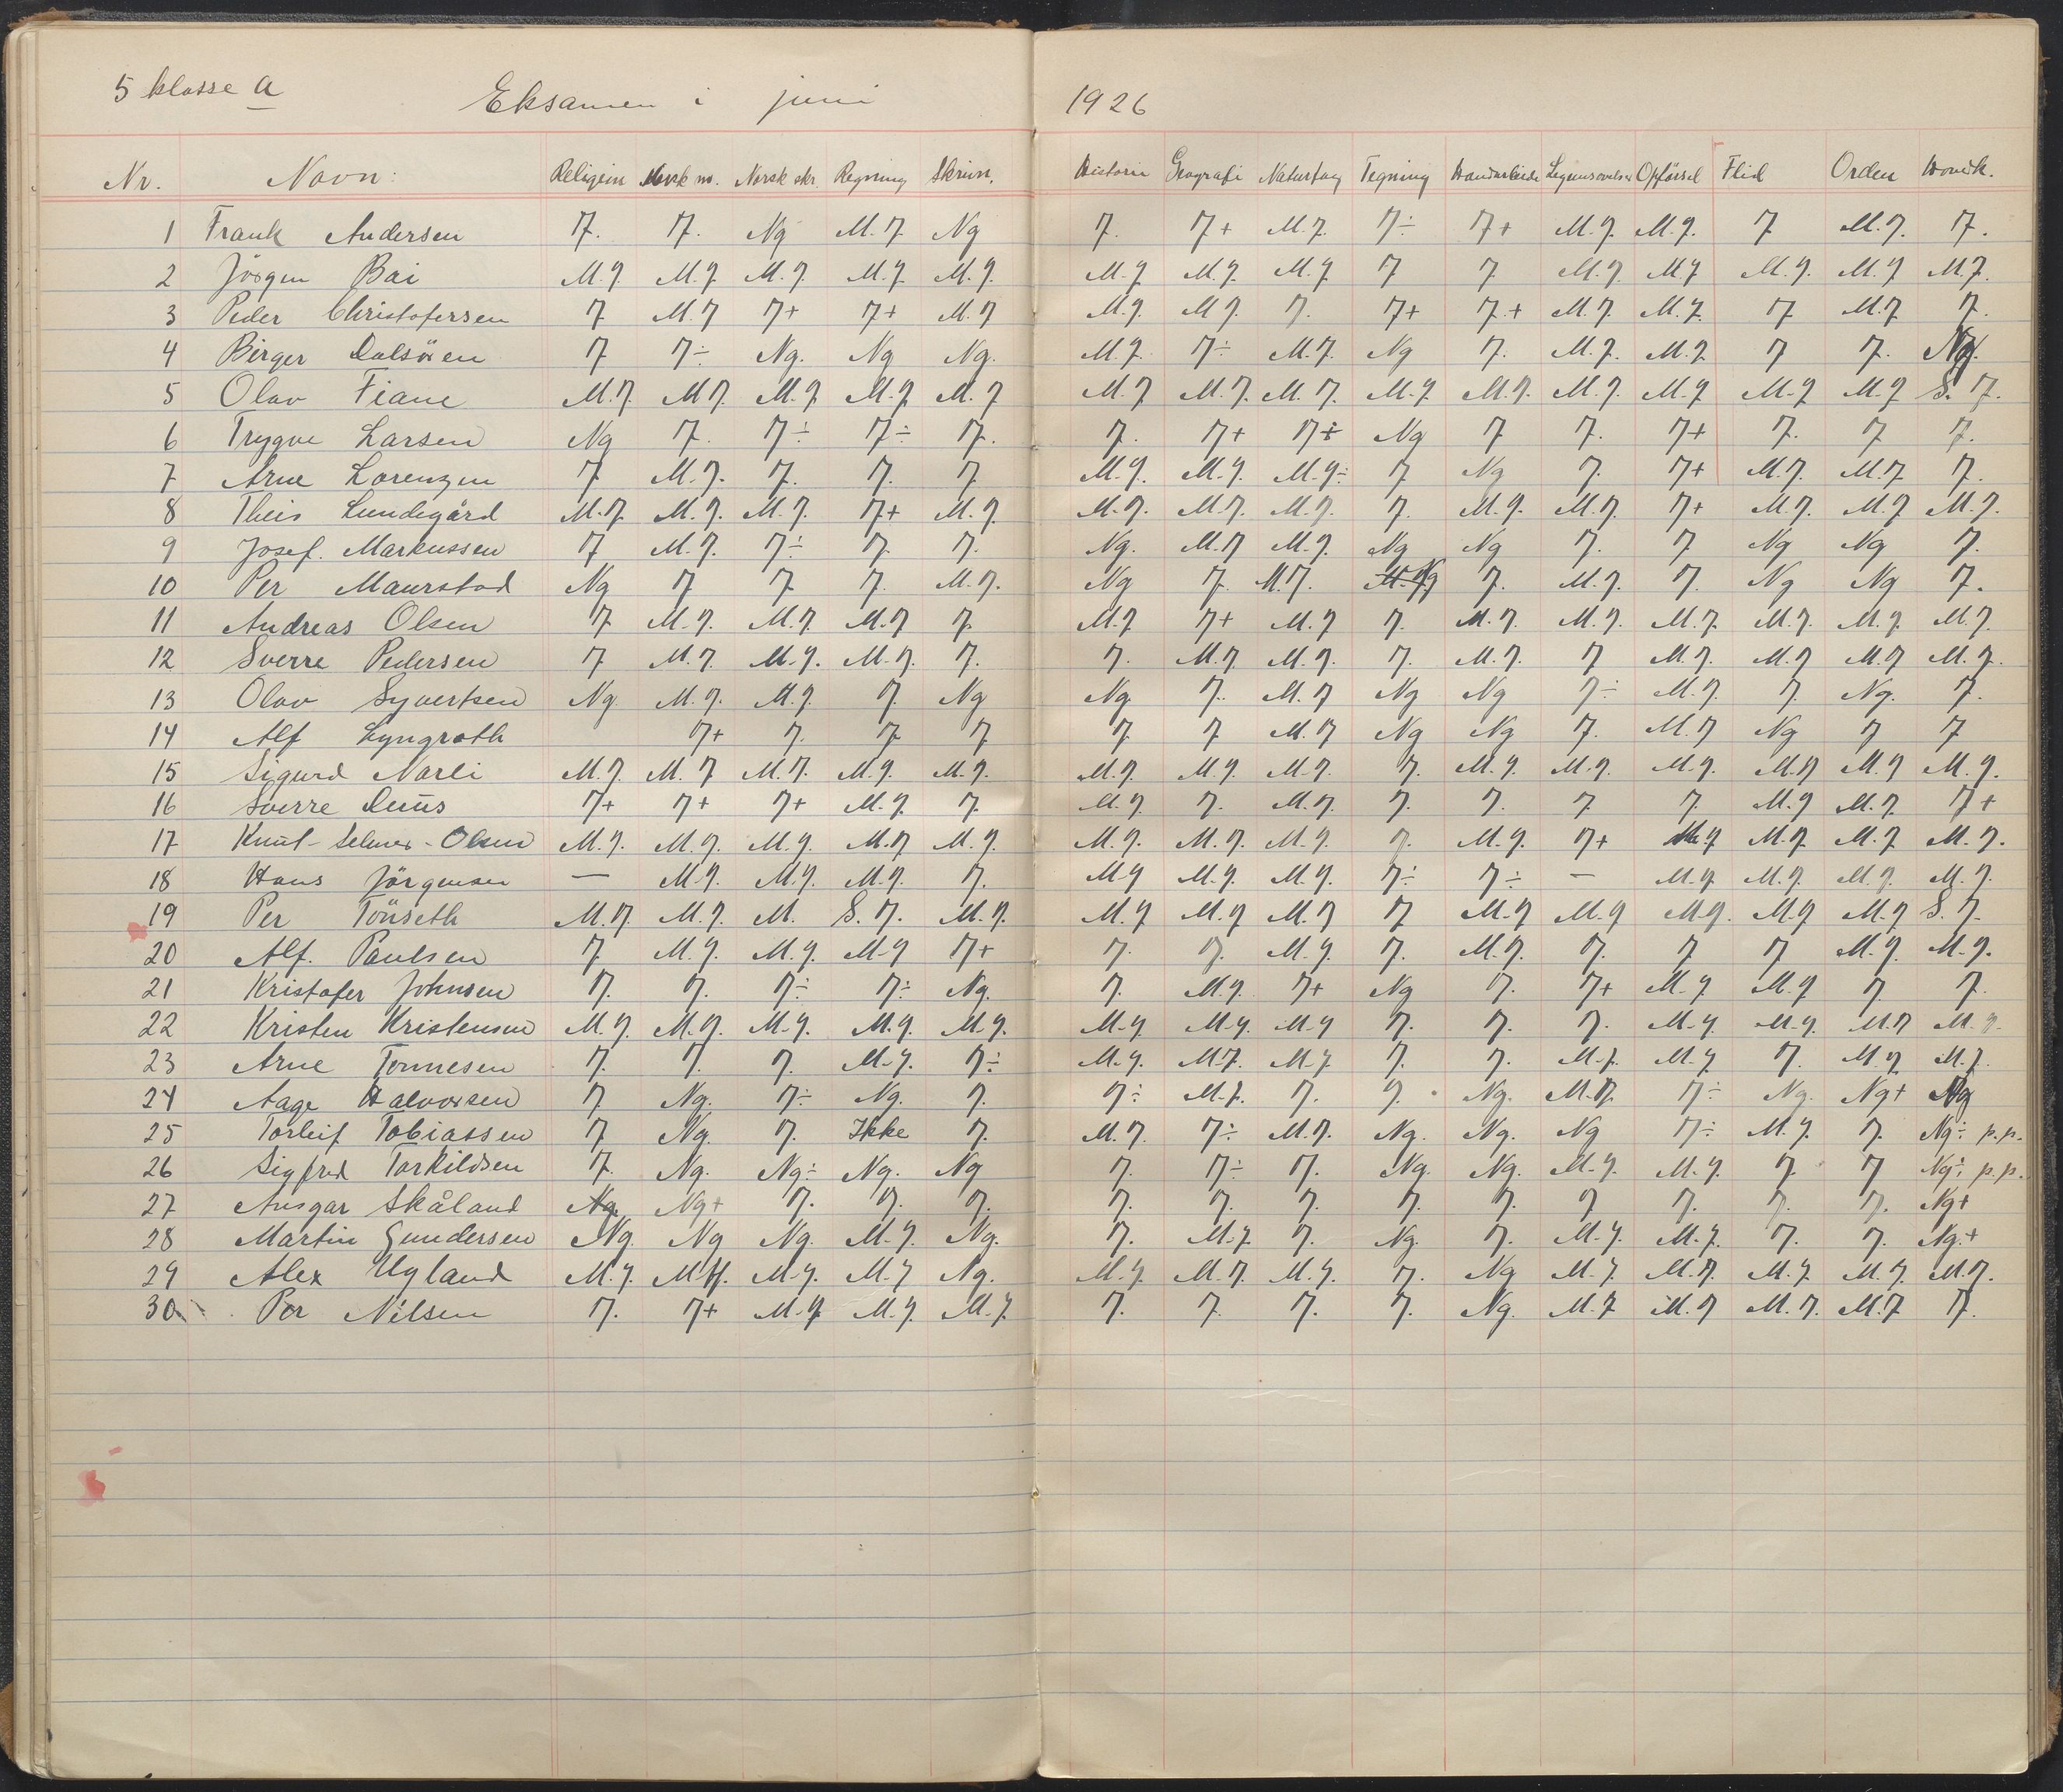 5 klasse a Eksamen i juni 1926
Nr. Navn: Religion Norsk m. Norsk skr. Regning Skrivn. Historie Geografi Naturfag Tegning Handarbeide Legemsøvelse Opførsel Flid Orden Hovedk.
1 Frank Andersen T. T. Ng M.T. Ng T. T+ M.T. T÷ T+ M.T. M.T. T M.T. T.
2 Jörgen Bai M.T. M.T. M.T. M.T. M.T. M.T M.T. M.T T T M.T. M.T M.T. M.T M.T.
3 Peder Christofersen T M.T T+ T+ M.T M.T. M.T. T. T+ T+ M.T. M.T. T M.T T.
4 Birger Dalsöen T T÷ Ng. Ng Ng. M.T. T÷ M.T. Ng T. M.T. M.T. T T. Ng.
5 Olav Fiane M.T. M.T. M.T M.T M.T M.T M.T. M.T. M.T M.T. M.T. M.T M.T M.T S.T.
6 Trygve Larsen Ng T. T÷ T÷ T. T. T+ T÷ Ng T T. T+ T. T T.
7 Arne Lorenzen T M.T. T. T. T M.T. M.T. M.T÷ T Ng T. T+ M.T. M.T T.
8 Theis Lundegård M.T. M.T. M.T. T+ M.T. M.T. M.T. M.T. T. M.T. M.T. T+ M.T. M.T M.T.
9 Josef. Markussen T M.T. T÷ T. T. Ng. M.T M.T. Ng Ng T. T Ng Ng T.
10 Per Maurstad Ng T T T. M.T. Ng T. M.T. Ng T. M.T. T. Ng Ng T.
11 Andreas Olsen T M.T. M.T. M.T T. M.T T+ M.T T. M.T. M.T. M.T. M.T. M.T. M.T.
12 Sverre Pedersen T M.T. M.T. M.T. T. T. M.T. M.T. T. M.T. T M.T. M.T M.T M.T.
13 Olav Syvertsen Ng M.T. M.T. T. Ng Ng. T. M.T Ng Ng T÷ M.T. T. Ng. T.
14 Alf Lyngroth T+ T. T T T T M.T Ng Ng T. M.T Ng T T
15 Sigurd Narli M.T. M.T M.T. M.T. M.T. M.T. M.T. M.T. T. M.T. M.T. M.T. M.T M.T M.T.
16 Sverre Duus T+ T+ T+ M.T. T M.T. T. M.T. T. T. T T. M.T M.T. T+
17 Knut-Selmer-Olsen M.T. M.T. M.T. M.T M.T. M.T. M.T. M.T. T. M.T. T+ M.T M.T. M.T. M.T.
18 Hans Jörgensen — M.T. M.T. M.T. T. M.T M.T. M.T. T÷ T÷ — M.T. M.T. M.T. M.T.
19 Per Tönseth M.T. M.T. M. S.T. M.T. M.T M.T M.T T M.T M.T M.T. M.T M.T S.T.
20 Alf. Paulsen T M.T. M.T. M.T T+ T. T. M.T. T. M.T. T. T T M.T. M.T.
21 Kristofer Johnsen T. T. T÷ T÷ Ng. T. M.T. T+ Ng T. T+ M.T M.T T T.
22 Kristen Kristensen M.T. M.T. M.T. M.T. M.T. M.T M.T. M.T T. T. T. M.T. M.T. M.T M.T.
23 Arne Tonnesen T. T. T. M.T. T÷ M.T. M.T. M.T. T. T. M.T. M.T T. M.T M.T.
24 Aage Halvorsen T Ng. T÷ Ng. T. T÷ M.T. T. T. Ng. M.T. T÷ Ng. Ng+ Ng
25 Torleif Tobiassen T Ng. T. Ikke T. M.T. T÷ M.T. Ng. Ng. Ng T÷ M.T. T. Ng÷ p.p.
26 Sigfred Torkildsen T. Ng. Ng÷ Ng. Ng T. T÷ T. Ng. Ng. M.T. M.T. T T Ng÷ p.p.
27 Ansgar Skåland Ng. Ng+ T. T. T. T. T. T. T. T. T T. T. T. Ng+
28 Martin Gundersen Ng. Ng Ng. M.T. Ng. T. M.T T. Ng. T. M.T. M.T. T. T. Ng.+
29 Alex Ugland M.T. M.T. M.T. M.T Ng. M.T. M.T. M.T. T. Ng M.T. M.T. M.T. M.T. M.T.
30 Per Nilsen T. T+ M.T M.T. M.T. T. T. T. T. Ng. M.T M.T M.T. M.T T.